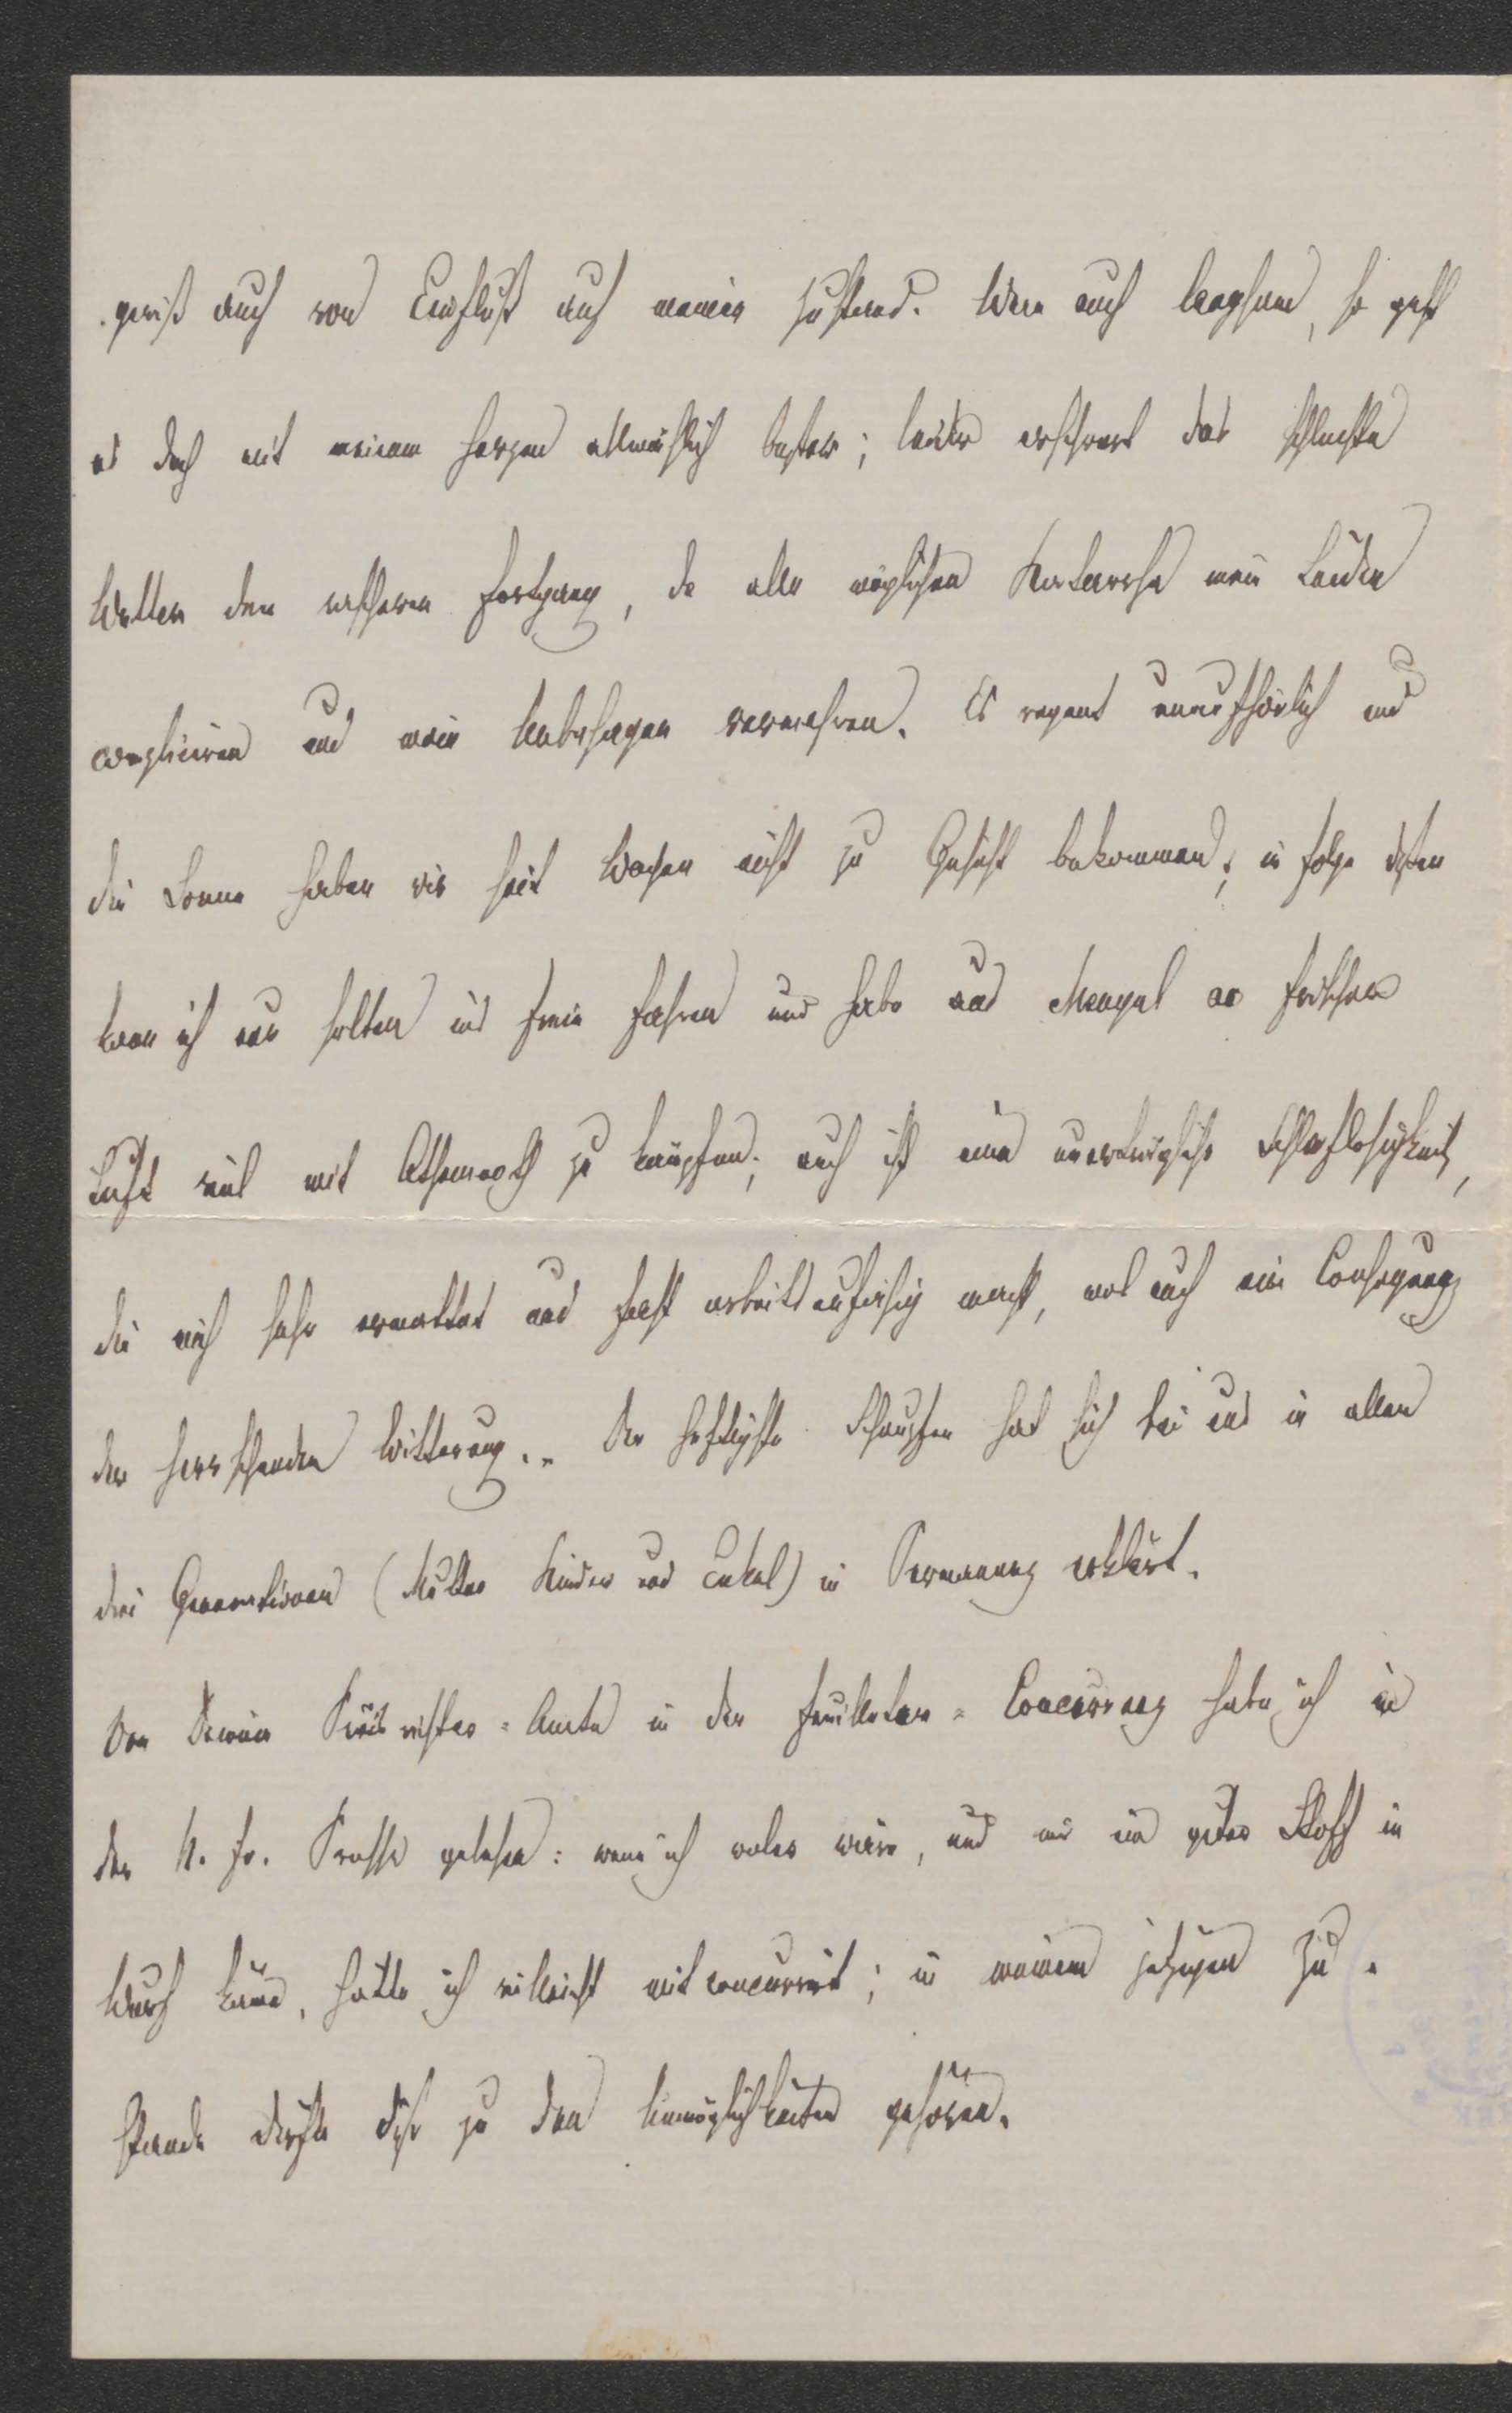 gewiß auch von Einfluß auf meinen Zustand. Wenn auch langsam, so geht
es doch mit meinem Herzen allmählich besser; leider erschwert das schlechte
Wetter den rascheren Fortgang, da alle möglichen Katarrhe mein Leiden
compliciren und mein Unbehagen vermehren. Es regnet unaufhörlich und
die Sonne haben wir seit Wochen nicht zu Gesicht bekommen; in Folge dessen
kann ich nur selten ins Freie fahren und habe aus Mangel an frischer
Luft viel mit Athemnoth zu kämpfen; auch ist eine unerträgliche Schlaflosigkeit,
die mich sehr ermattet und fast arbeitsunfähig macht, wol auch eine Consequenz
der herrschenden Witterung. Der heftigste Schnupfen hat sich bei uns in allen
drei Generationen (Mutter Kinder und Enkel) in Permanenz erklärt.
Von Deinem Preisrichter-Amte in der Feuilleton-Concurrenz habe ich in
der N. fr. Presse gelesen: wenn ich woler wäre, und mir ein guter Stoff in
Wurf käme, hätte ich vielleicht mit concurrirt; in meinem jetzigen Zu-
stande dürfte dieß zu den Unmöglichkeiten gehören.